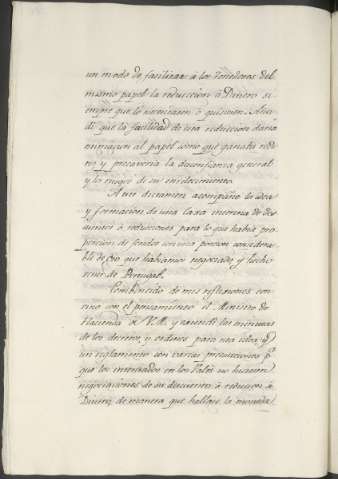 un modo de facilitar à los Tenedores del
mismo papel la reduccion à Dinero si-
empre que lo necesitasen ò quisiesen. Aña-
di que la facilidad de esta reduccion daria
estimacion al papel como que ganaba redi-
to, y precaveria la desconfianza general
y lo mejor de su envilecimiento.
A mi dictamen acompañé la idea
y formacion de una Caxa interina de des-
cuentos ò reducciones para lo que habia pro-
porcion de fondos con una porcion considera-
ble de oro que habiamos negociado y hecho
venir de Portugal.
Combencido de mis reflexiones con-
vino con el pensamiento el Ministro de
Hacienda de V. M. y extendi las minutas
de los decretos, y ordenes para esta idea, y
un reglamento con varias precauciones pª
que los interesados en los Vales no hiciesen
negociaciones de su descuento ò reduccion à
Dinero, de manera que hallase la moneda